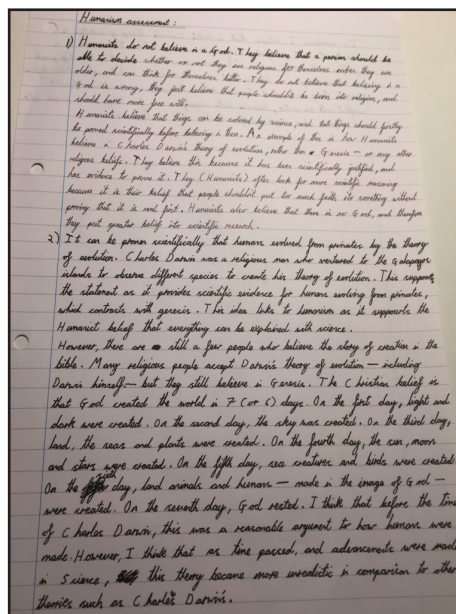 Humanism assessment :
1) Humanists do not believe in a God. They believe that a person should be
able to decide whether or not they are religious for themselves when they are
older, and can think for themselves better. They do not believe that believing in a
God is wrong, they just believe that people shouldn't be born into religion, and
should have more free will.
Humanists believe that things can be solved by science, and that things should firstly
be proved scientifically before believing in them. An example of this is how Humanists
believe in Charles Darwin's theory of evolution, rather than Genesis — or any other
religious beliefs. They believe this because it has been scientifically justified, and
has evidence to prove it. They (Humanists) often look for more scientific reasoning
because it is their belief that people shouldn't put too much faith into something without
proving that it is real first. Humanists also believe that there is no God, and therefore
they put greater belief into scientific research.
2) It can be proven scientifically that humans evolved from primates by the theory
of evolution. Charles Darwin was a religious man who ventured to the Galapagos
islands to observe different species to create his theory of evolution. This supports
the statement as it provides scientific evidence for humans evolving from primates,
which contrasts with genesis. This idea links to humanism as it supports the
Humanist belief that everything can be explained with science.
However, there are still a few people who believe the story of creation in the
bible. Many religious people accept Darwin's theory of evolution — including
Darwin himself — but they still believe in Genesis. The Christian belief is
that God created the world in 7 (or 6) days. On the first day, light and
dark were created. On the second day, the sky was created. On the third day,
land, the seas and plants were created. On the fourth day, the sun, moon
and stars were created. On the fifth day, sea creatures and birds were created.
On the sixth day, land animals and humans — made in the image of God —
were created. On the seventh day, God rested. I think that before the time
of Charles Darwin, this was a reasonable argument to how humans were
made. However, I think that as time passed, and advancements were made
in Science, this theory became more unrealistic in comparison to other
theories such as Charles Darwin's.